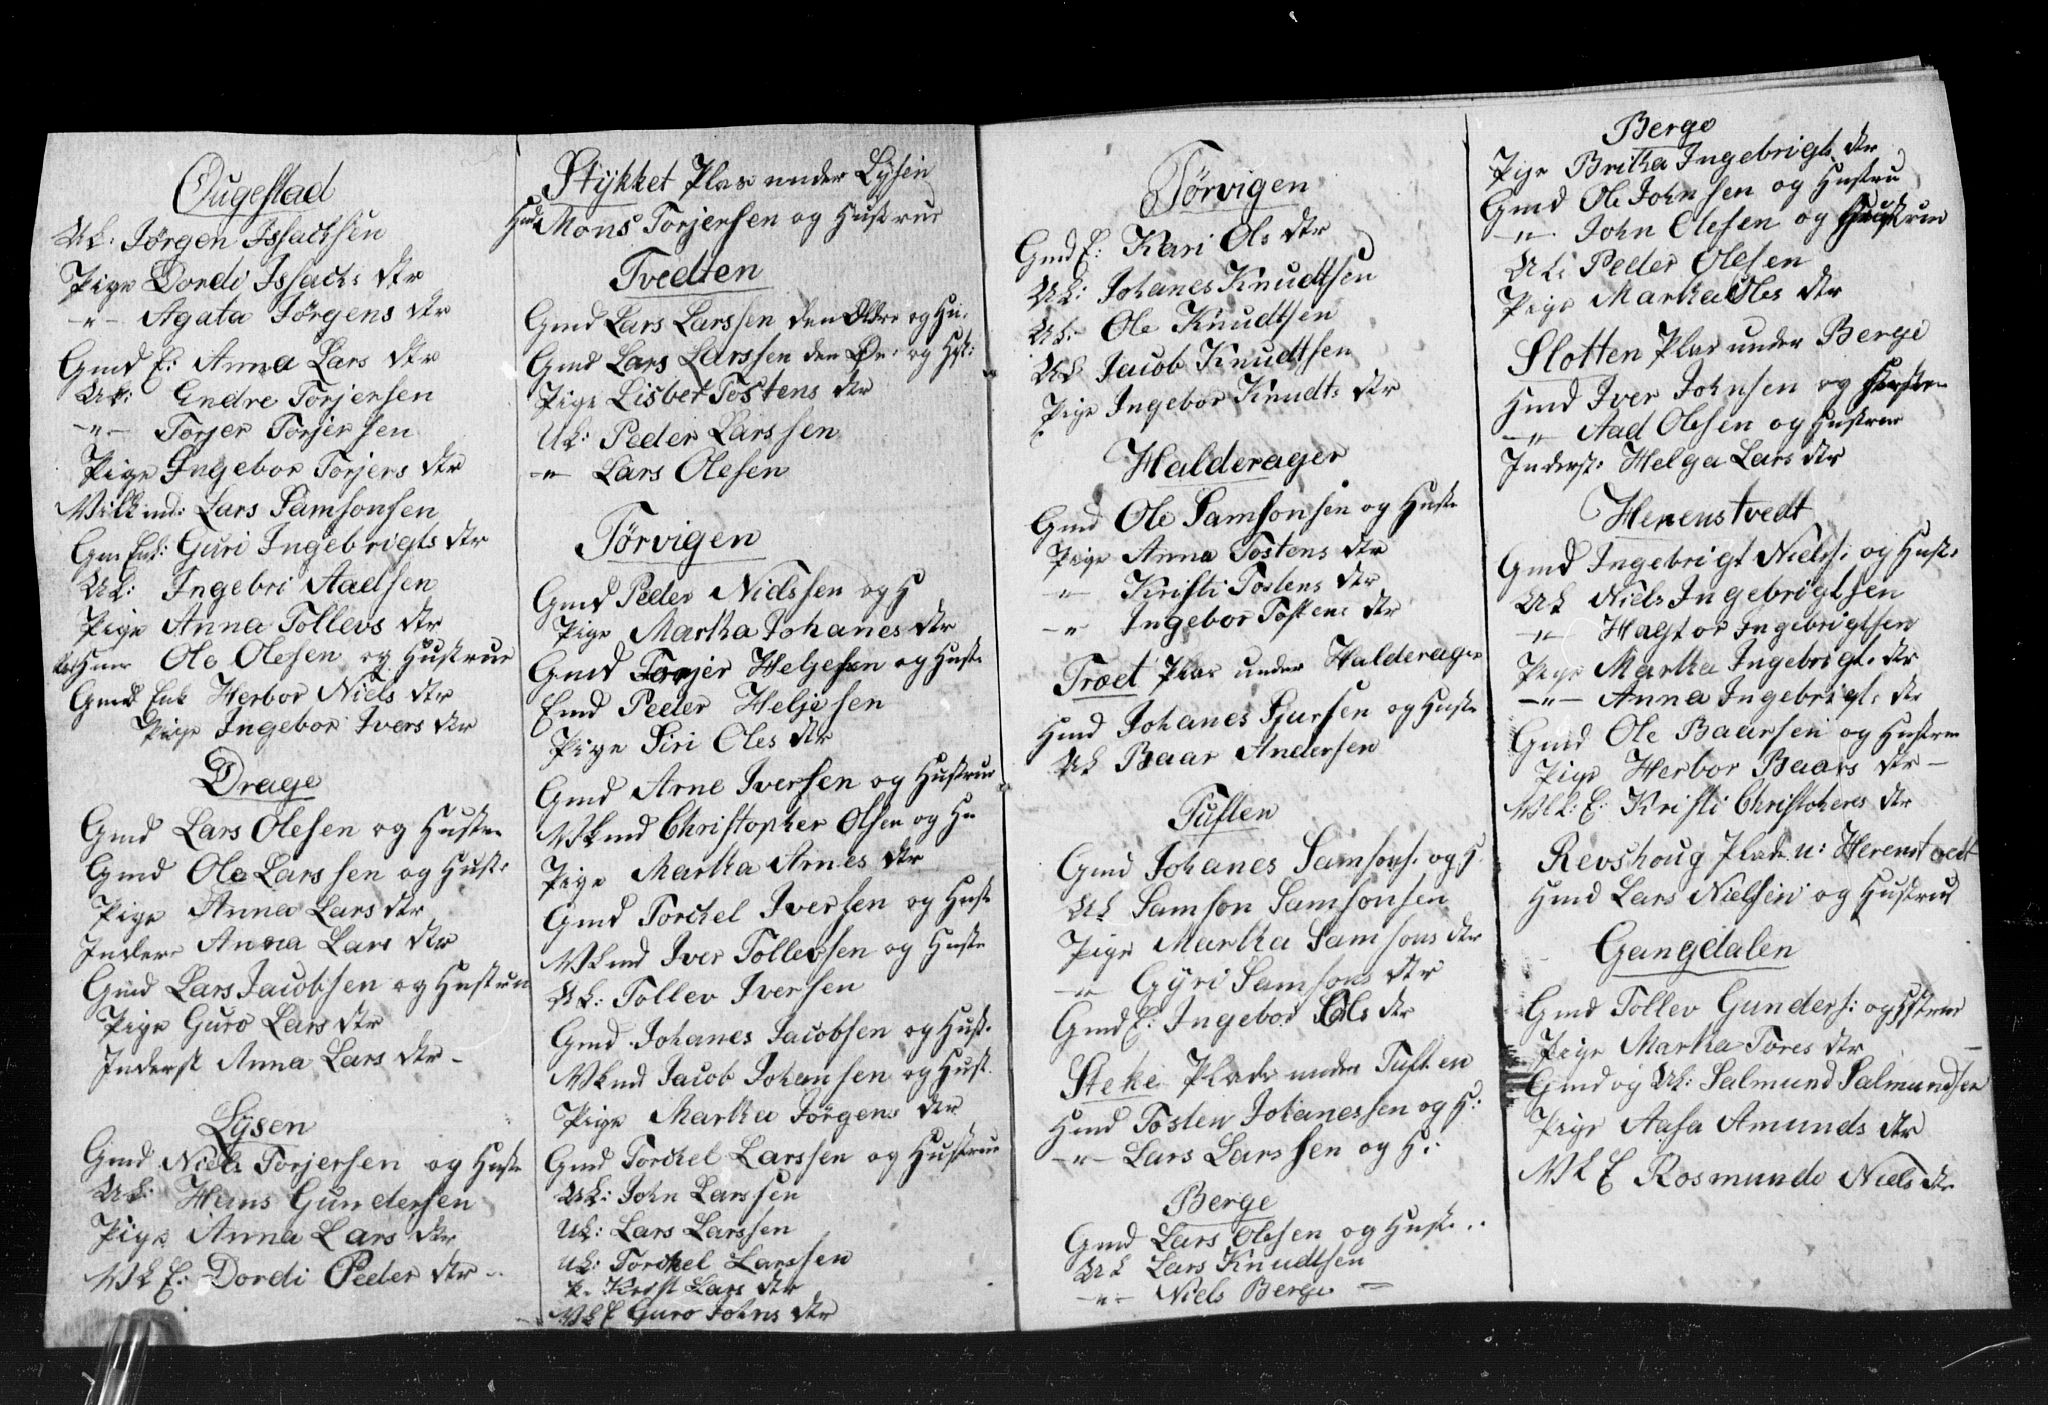 Ougestad
UK: Jörgen Issachsen
Pige Dordi Issachs dtr
-"- Agata Jörgens dtr
Gmd E: Anna Lars dtr
UK: Endre Torjersen
-"- Torjer Torjersen
Pige Ingebor Torjers dtr
Vilkmd: Lars Samsonsen
Gm Enk: Guri Ingebrigts dtr
UK: Ingebri Aadsen
Pige Anna Tollevs dtr
Ole Olesen og Hustrue
Gmd Enk Herbor Niels dtr
Pige Ingebor Ivers dtr
Drage
Gmd Lars Olesen og Hustru
Gmd Ole Larssen og Hust:
Pige Anna Lars dtr
Inders Anna Lars dtr
Gmd Lars Jacobsen og Hustru
Pige Guro Lars dtr
Inderst Anna Lars dtr -
Lysen
Gmd Niels Torjersen og Hustr
UK: Hans Gundersen
Pige Anna Lars dtr
VK E: Dordi Peder dtr -
Stykket Plas under Lysen
Hmd Mons Torjersen og Hustrue
Tvedten
Gmd Lars Larssen den Eldre og Hu.
Gmd Lars Larssen den Yn: og Hst:
Pige Lisbet Tostens dtr
UK: Peder Larssen
-"- Lars Olesen
Törvigen
Gmd Peder Nielssen og H
Pige Martha Johanes dtr
Gmd Torjer Heljesen og Hustr
Emd Peder Heljesen
Pige Siri Oles dtr
Gmd Arne Iversen og Hustrue
VKmd Christopher Olsen og Hu
Pige Martha Arnes dtr
Gmd Torckel Iversen og Hust
VKmd Iver Tollevsen og Hustr
UK: Tollev Iversen
Gmd Johanes Jacobsen og Hust.
VKmd Jacob Johansen og Hust.
Pige Martha Jörgens dtr
Gmd Torckel Larssen og Hustrue
UK: John Larssen
UK: Lars Larssen
UK: Torckel Larssen
P. Krist Lars dtr
VK E Guro Johns dtr
Törvigen
Gmd E: Kari Ols dtr
UK: Johanes Knudtsen
UK: Ole Knudtsen
UK Jacob Knudtsen
Pige Ingebor Knudts dtr
Halderager
Gmd Ole Samsonsen og Hustr
Pige Anna Tostens dtr
-"- Kristi Tostens dtr
-"- Ingebor Tostens dtr
Træet Plas under Halderager
Hmd Johanes Sjursen og Hustr
UK Baar Andersen
Tuften
Gmd Johanes Samsons: og H.
UK Samson Samsonsen
Pige Martha Samsons dtr
-"- Gyri Samsons dtr
Gmd E: Ingebor Ols dtr
Steke Plads under Tuften
Hmd Tosten Johanessen og H:
-"- Lars Larssen og H:
Berge
Gmd Lars Olesen og Hustr..
UK Lars Knudtsen
-"- Niels Berge =
Berge
Pige Britha Ingebrigts dtr
Gmd Ole Johnsen og Hustru
-"- John Olesen og Hustrue
UK: Peder Olesen
Pige Martha Oles dtr
Slotten Plas under Berge
Hmd Iver Johnsen og Hustru
-"- Aad Olesen og Hustrue
Inderst: Helga Lars dtr
Herenstvedt
Gmd Ingebrigt Niels: og Hust:
UK Niels Ingebrigtsen
-"- Hagtor Ingebrigtsen
Pige Martha Ingebrigts dtr
-"- Anna Ingebrigts dtr
Gmd Ole Baarsen og Hustru
Pige Herbor Baars dtr -
VK: E: Kristi Christophers dtr
Revshoug Plads u: Herenstvedt
Hmd Lars Nielsen og Hustrue
Gangdalen
Gmd Tollev Gunders: og Hstrue
Pige Martha Tores dtr -
Gmd og UK: Salmund Salmundsen
Pige Aasa Amunds dtr
VK E Rosmunde Niels dtr